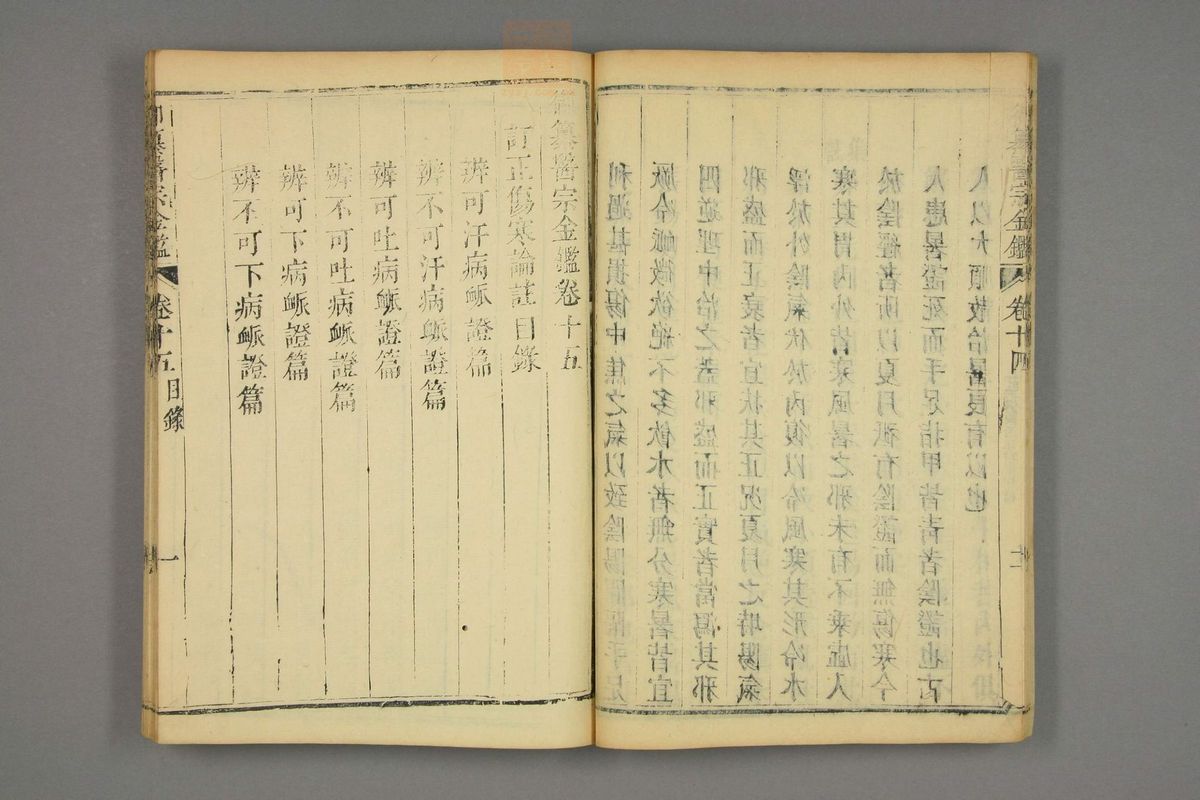 利過甚損傷中焦之氣以致陰陽
厥冷脈微欲絕不多飲水者無分寒暑皆宜
四逆理中治之蓋邪盛而正實者當瀉其邪
邪盛而正衰者宜扶其正況夏月之時陽氣
浮於外陰氣伏於內復以冷風寒其形冷水
寒其胃內外皆寒風暑之邪未有不乘虛入
於陰經者所以夏月秪有陰證而無傷寒今
人患暑證死而手足指甲皆青者陰證也古
人以大順散治暑良有以也
醫宗金鑑
卷十四
御纂醫宗金鑑卷十五
訂正傷寒論註目錄
辨可汗病脈證篇
辨不可汗病脈證篇
辨可吐病脈證篇
辨不可吐病脈證篇
辨可下病脈證篇
辨不可下病脈證篇
御纂醫宗金鑑
卷十五目錄
一